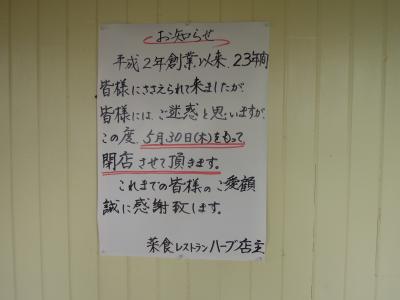 お知らせ
平成2年創業以来、23年間
皆様にささえられて来ましたが、
皆様には、ご迷惑と思いますが、
この度、5月30日(木)をもって、
閉店させて頂きます。
これまでの皆様のご愛顧
誠に感謝致します。
菜食レストランハーブ店主